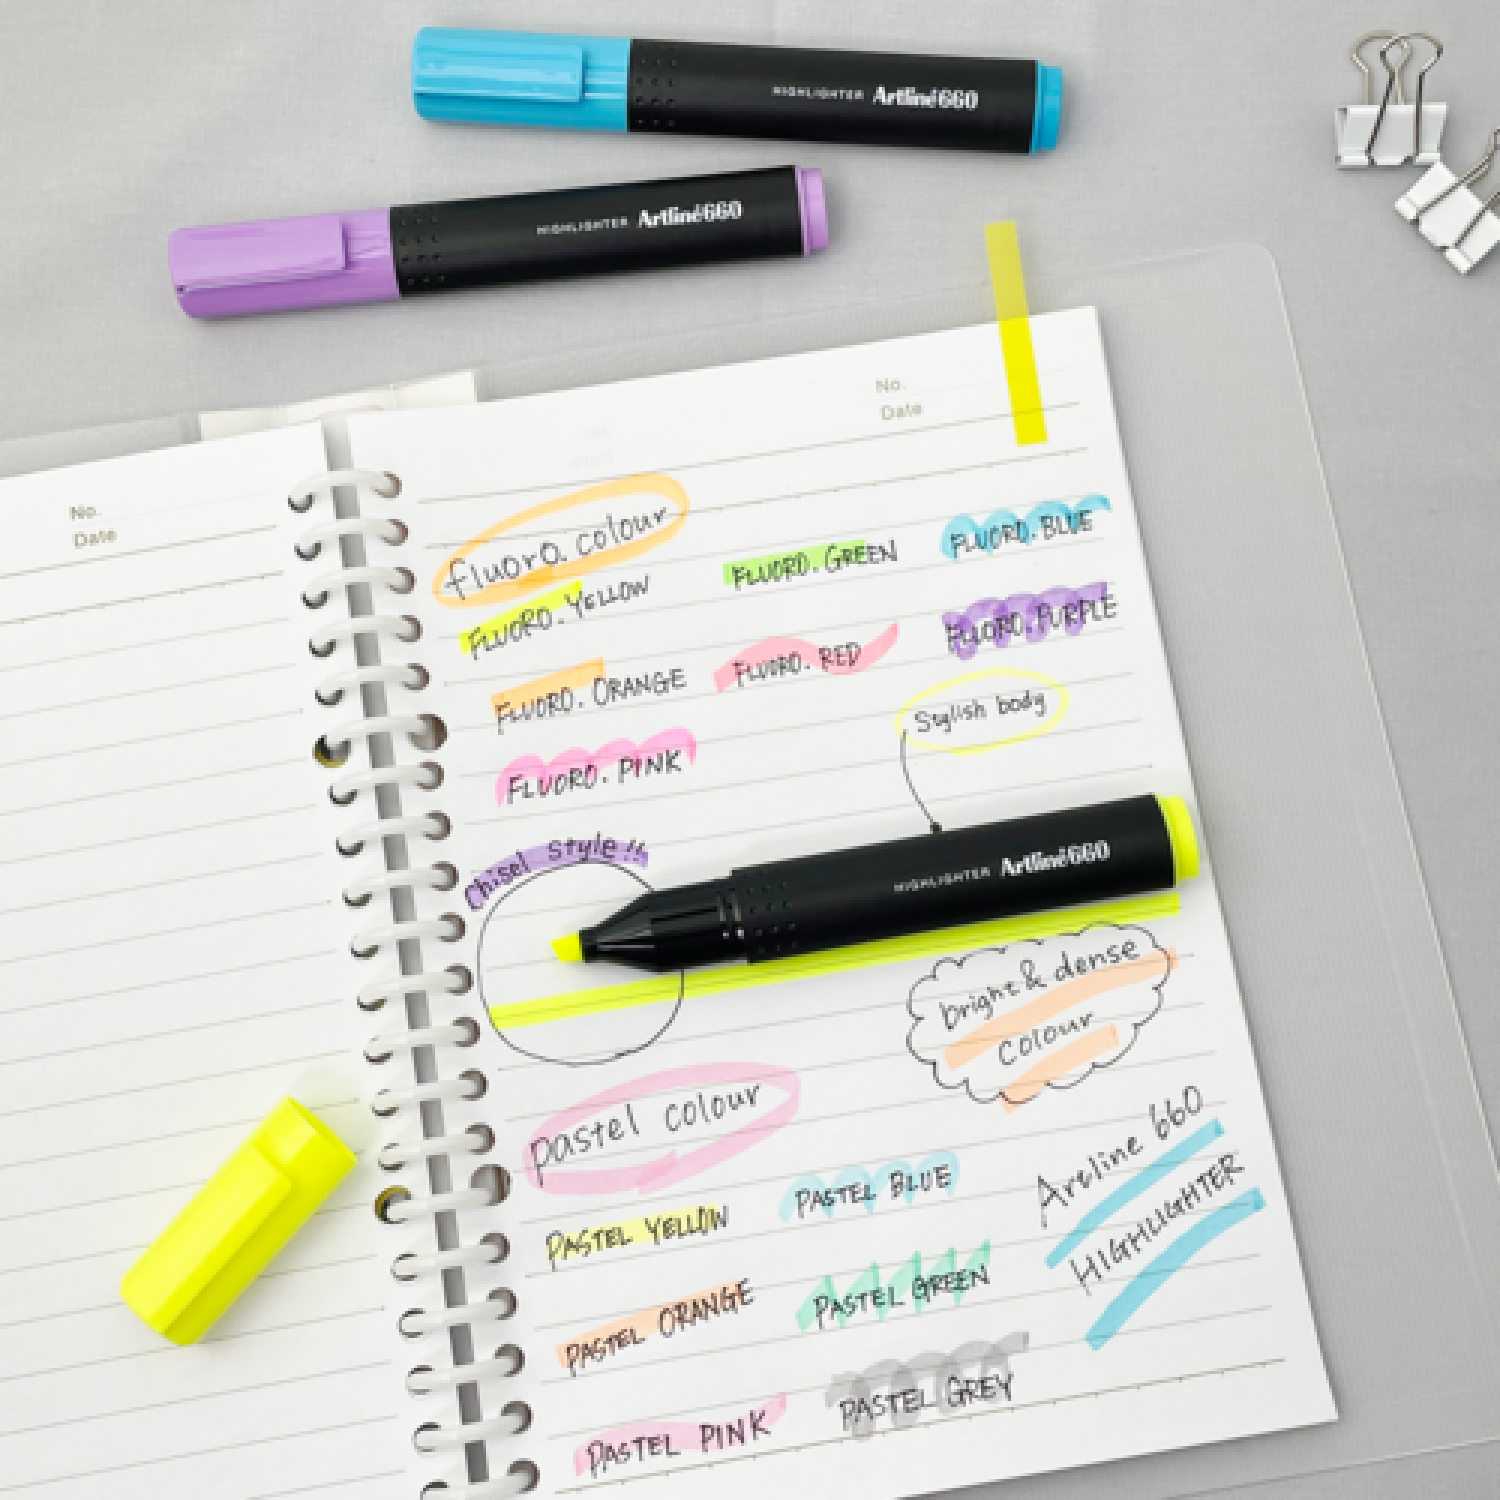 HIGHLIGHTER Artline660
HIGHLIGHTER Artline660
No.
Date
No.
Date
fluoro. colour
FLUORO. YELLOW
FLUORO. GREEN
FLUORO. BLUE
FLUORO. ORANGE
FLUORO. RED
FLUORO. PURPLE
FLUORO. PINK
Stylish body
Chisel Style!!
HIGHLIGHTER Artline660
bright & dense
colour
pastel colour
PASTEL YELLOW
PASTEL BLUE
PASTEL ORANGE
PASTEL GREEN
PASTEL PINK
PASTEL GREY
Artline 660
HIGHLIGHTER